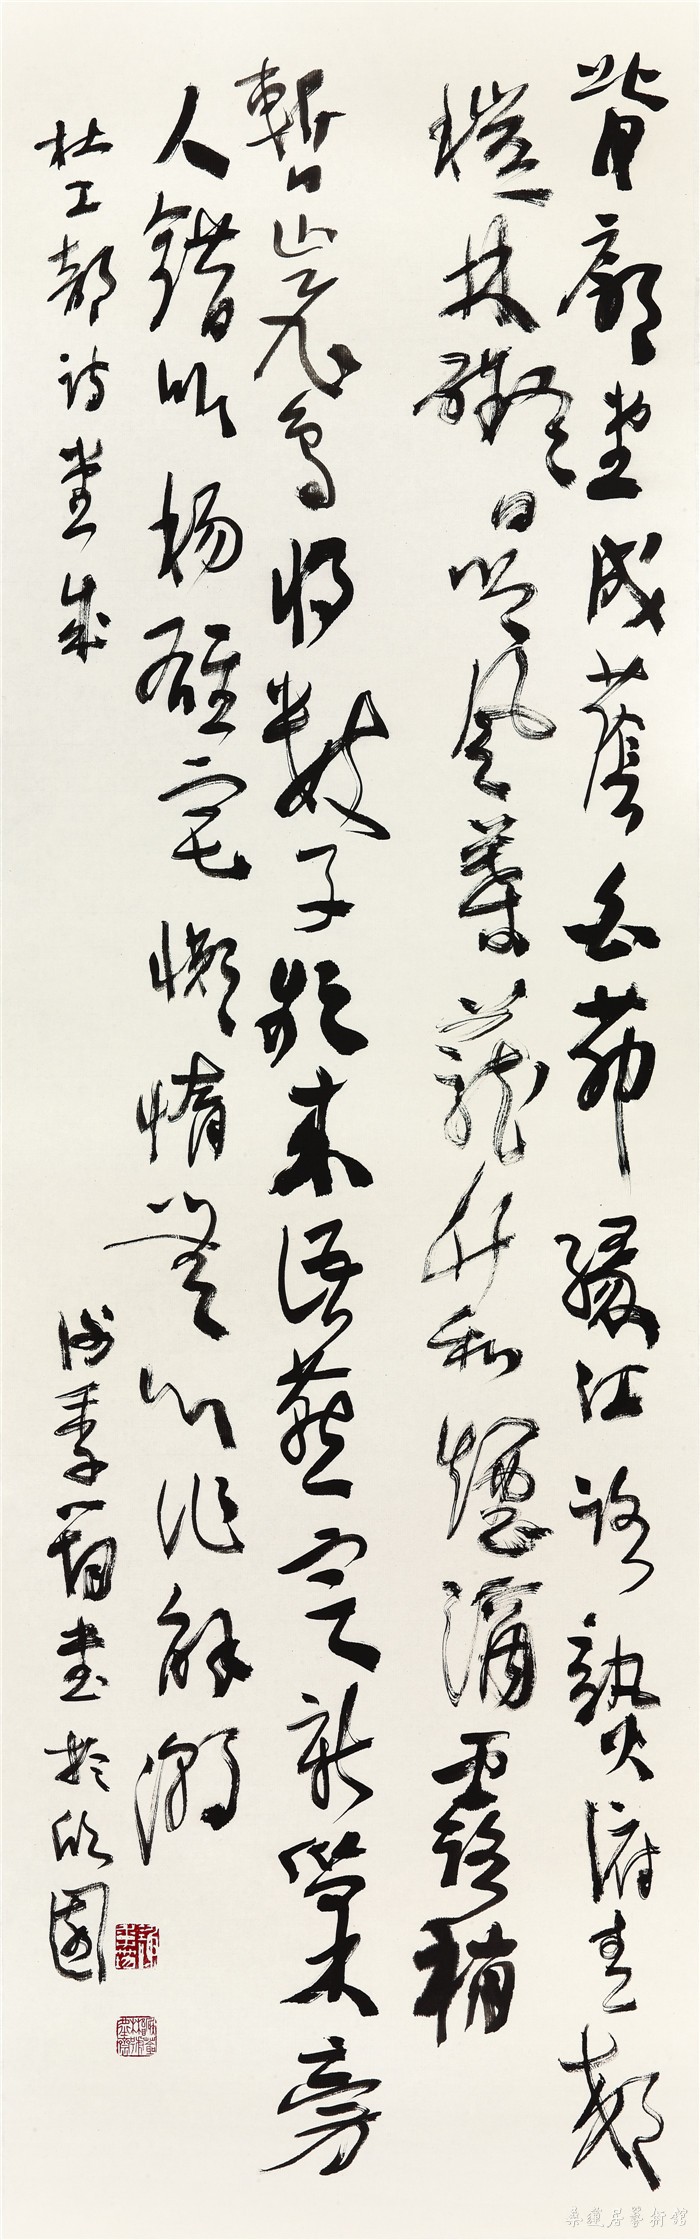 背郭堂成蔭白茅緣江路熟俯青郊
榿林礙日吟風葉蘢竹和煙滴露梢
暫止飛鳥將數子頻來語燕定新巢旁
人錯比楊雄宅懶惰無心作解嘲
杜工部詩堂成 書於
桑蓮居藝術館